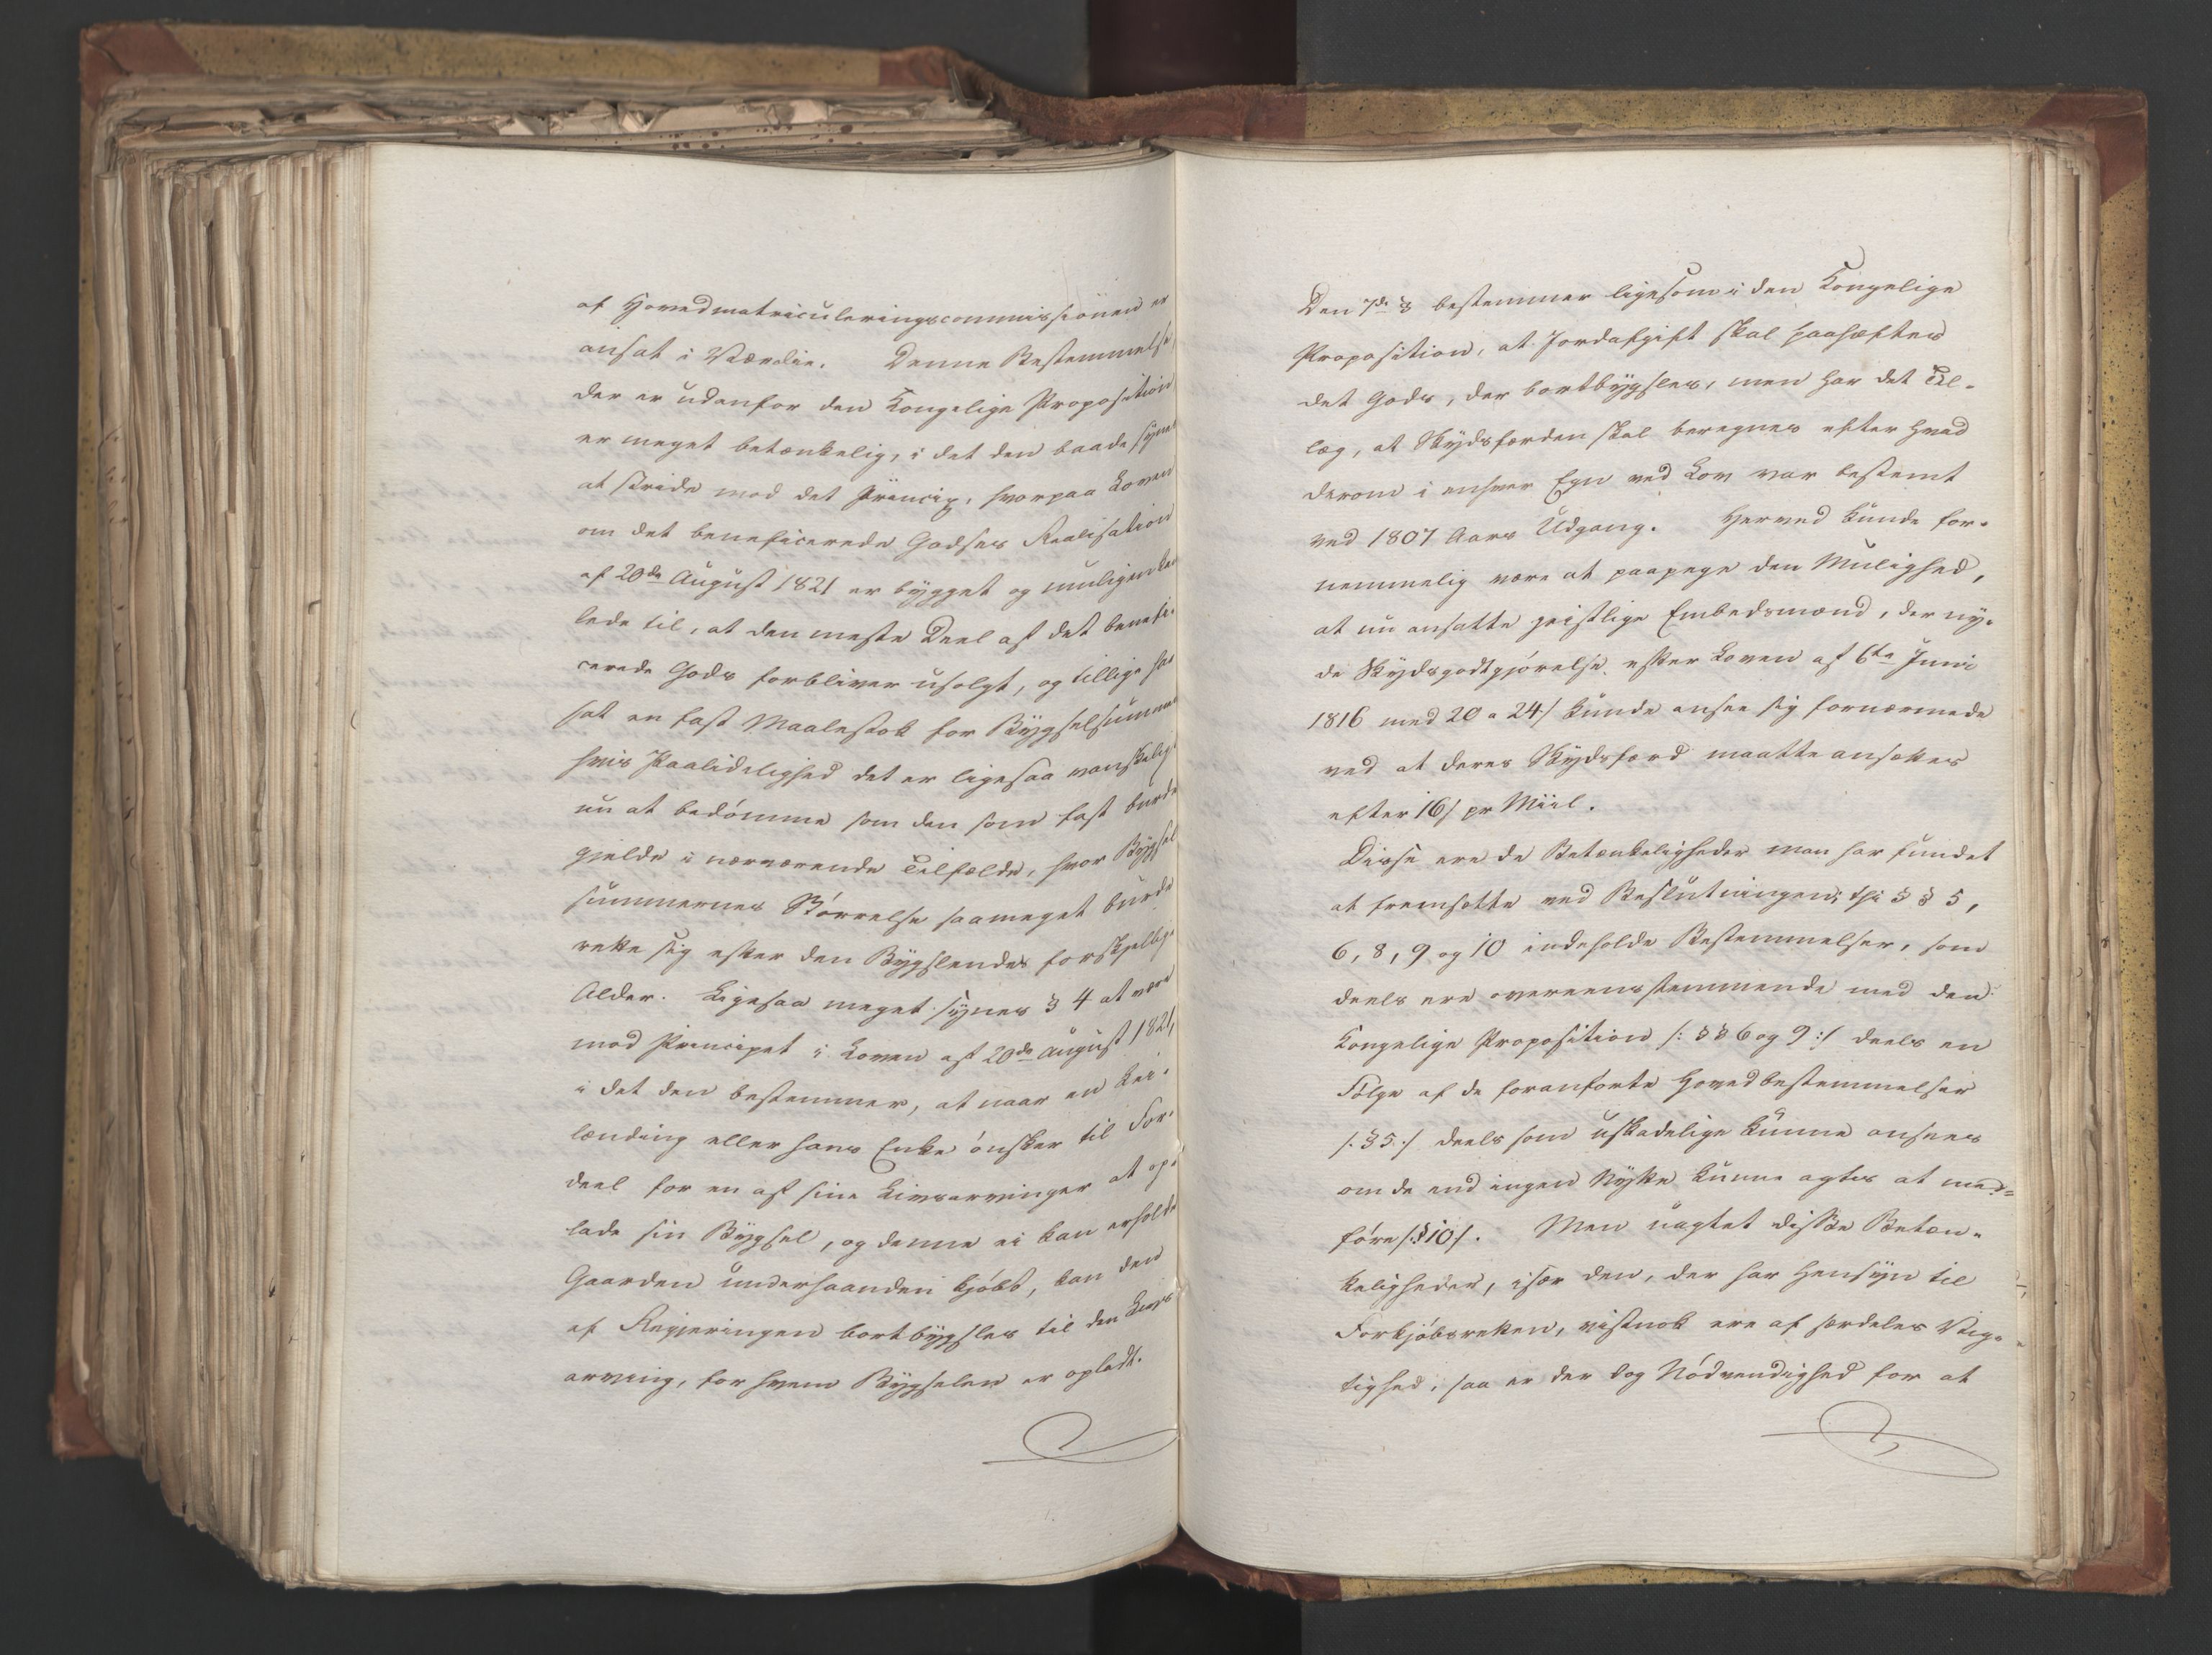 af Hovedmatriculeringscommissionen er
ansat i Værdie. Denne Bestemmelse,
der er udenfor den Kongelige Proposition
er meget betænkelig, i det den baade synes
at stride mod det Princip, hvorpaa Loven
om det beneficerede Godses Realisation
af 20de August 1821 er bygget og muligen kan
lede til, at den meste Deel af det benefi-
cerede Gods forbliver usolgt, og tillige har
sat en fast Maalestok for Bygselsummen
hvis Paalidelighed det er ligesaa vanskeligt
nu at bedømme som den som fast burde
gjelde i nærværende Tilfælde, hvor Bygsel
summernes Størrelse saameget burde
rette sig efter den Bygslendes forskjellige
Alder. Ligesaa meget synes § 4 at være
mod Principet i Loven af 20de August 1821,
i det den bestemmer, at naar en Lei-
lænding eller hans Enke ønsker til For-
deel for en af sine Livsarvinger at op-
lade sin Bygsel, og denne ei kan erholde
Gaarden underhaanden kjøbt, kan den
af Regjeringen bortbygsles til den Livs
arving, for hvem Bygselen er opladt.
Den 7de § bestemmer ligesom i den Kongelige
Proposition, at Jordafgift skal paahæftes
det Gods, der bortbygsles, men har det Til-
læg, at Skydsfærden skal beregnes efter hvad
derom i enhver Egn ved Lov var bestemt
ved 1807 Aars Udgang. Herved kunde for-
nemmelig være at paapege den Mulighed,
at nu ansatte geistlige Embedsmænd, der ny-
de Skydsgodtgjørelse efter Loven af 6te Juni
1816 med 20 a 24/ kunde ansee sig fornærmede
ved at deres Skydsfærd maatte ansættes
efter 16/ pr Miil.
Disse ere de Betænkeligheder man har fundet
at fremsætte ved Beslutningen; thi § § 5,
6, 8, 9 og 10 indeholde Bestemmelser, som
deels ere overeensstemmende med den
Kongelige Proposition /: § § 6 og 9 :/ deels en
Følge af de foranførte Hovedbestemmelser
/: § 5 :/ deels som uskadelige kunne ansees
om de end ingen Nytte kunne agtes at med-
føre /: § 10 /. Men uagtet disse Betæn-
keligheder, især den, der har Hensyn til
Forkjøbsretten, vistnok ere af særdeles Vig-
tighed, saa er der dog Nødvendighed for at